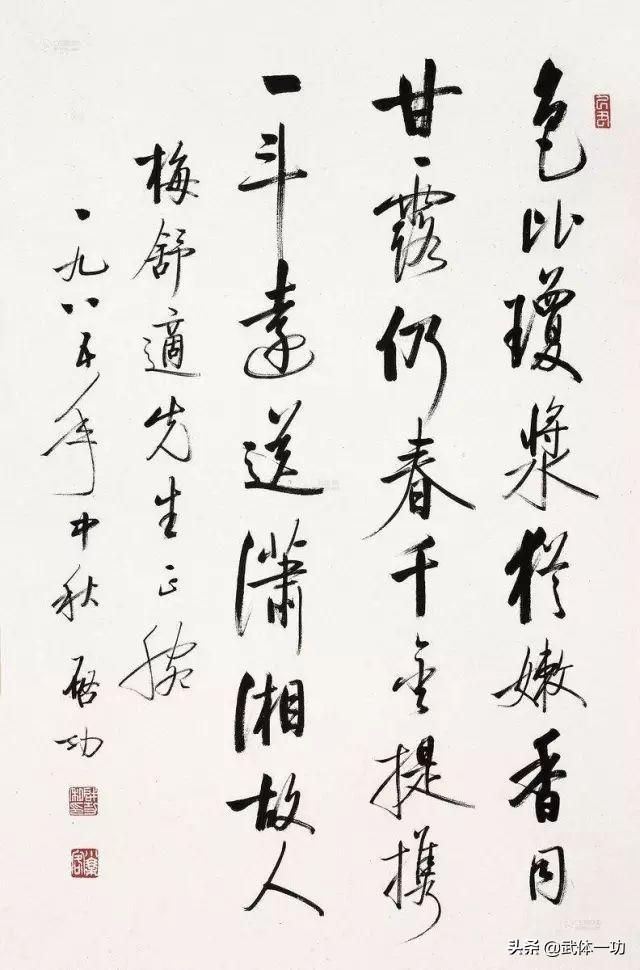 色比瓊漿猶嫩香同
甘露仍春千金提携
一斗遠送瀟湘故人
梅舒適先生正腕
一九八五年中秋 启功
头条 @武体一功